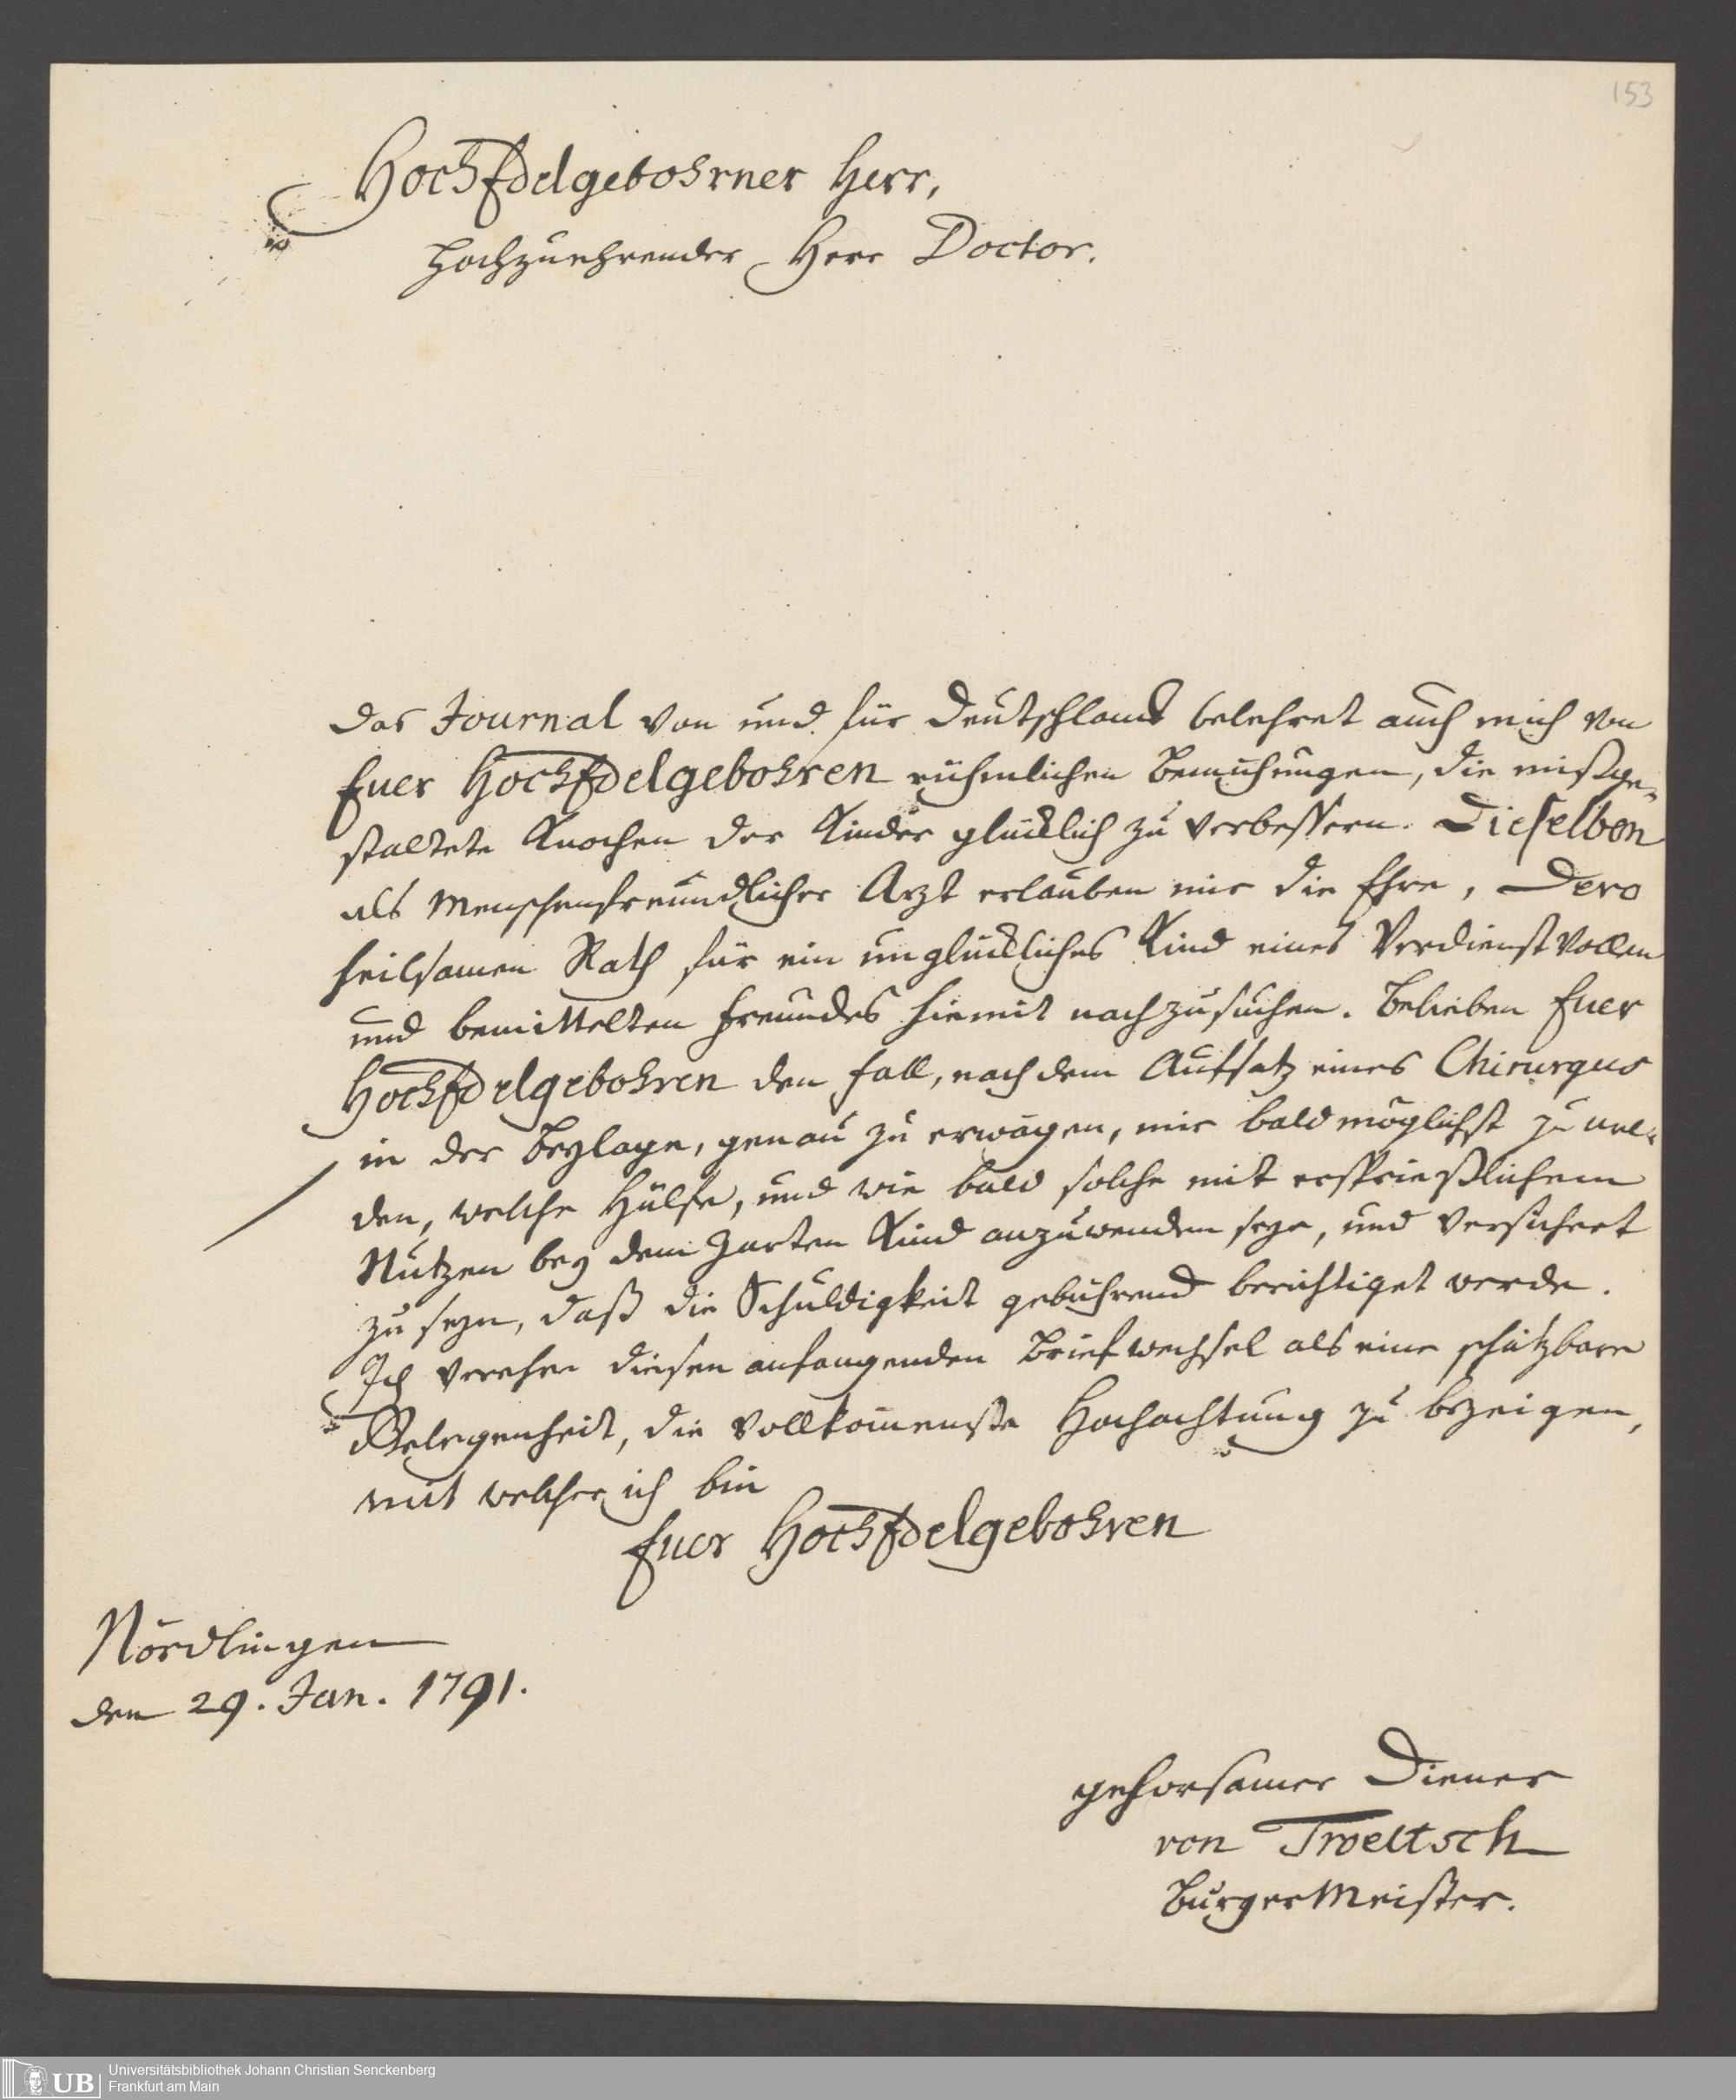 153
HochEdelgebohrner Herr,
Hochzuehrender Herr Doctor.
Das Journal von und für Deutschland belehret auch mich von
Euer HochEdelgebohren rühmlichen Bemühungen, die mißge-
staltete Knochen der Kinder glücklich zu verbessern. Dieselben
als Menschenfreundlicher Arzt erlauben mir die Ehre, Dero
heilsamen Rath für ein unglückliches Kind eines Verdienstvollen
und bemittelten Freundes hiemit nachzusuchen. Belieben Euer
HochEdelgebohren den Fall, nach dem Aufsatz eines Chirurgus
in der Beylage, genau zu erwägen, mir baldmöglichst zu mel-
den, welche Hülfe, und wie bald solche mit ersprießlichem
Nutzen bey dem zarten Kind anzuwenden seye, und versichert
zu seyn, daß die Schuldigkeit gebührend berichtiget werde.
Ich verehre diesen anfangenden Briefwechsel als eine schätzbare
Gelegenheit, die vollkom̅enste Hochachtung zu bezeigen,
mit welcher ich bin
Euer HochEdelgebohren
Nördlingen
den 29. Jan. 1791.
gehorsamer Diener
von Troeltsch
BurgerMeister.
UB
Universitätsbibliothek Johann Christian Senckenberg
Frankfurt am Main